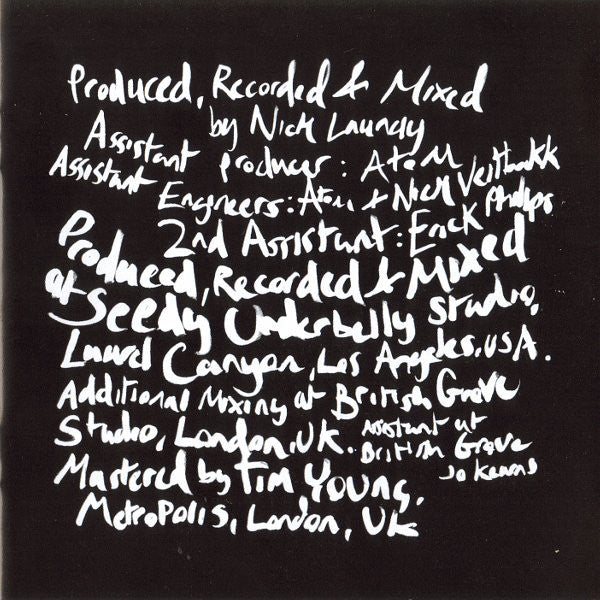 Produced, Recorded & Mixed
by Nick Launay
Assistant producer: Atom
Assistant Engineers: Atom & Nick Veithakk
2nd Assistant: Erick Phillips
Produced, Recorded & Mixed
at Seedy Underbelly studio,
Laurel Canyon, Los Angeles, USA.
Additional Mixing at British Grove
Studio, London, UK. Assistant at
British Grove
Jo Kearns
Mastered by Tim Young,
Metropolis, London, UK